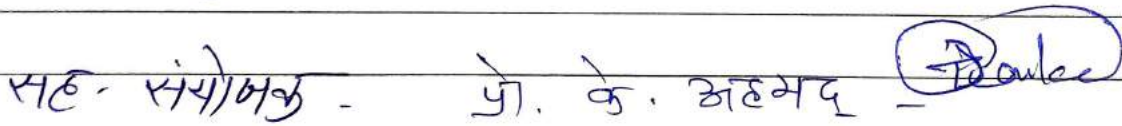 सह- संयोजक - प्रो. के. अहमद -